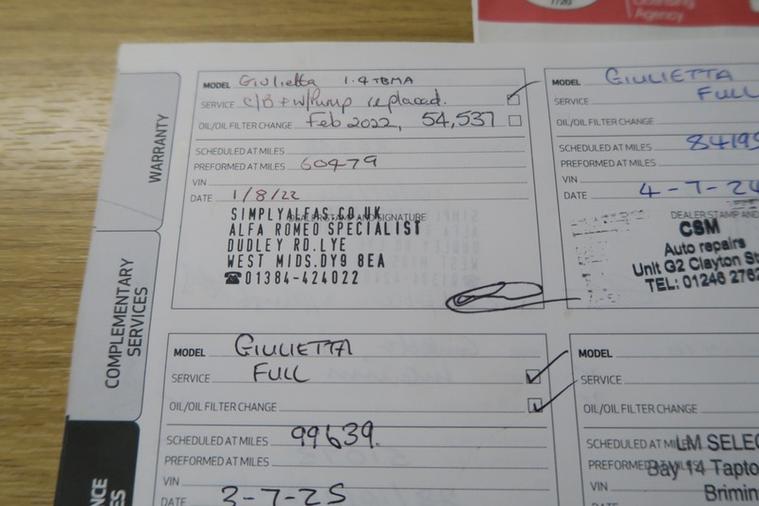 Licensing
Agency
WARRANTY
COMPLEMENTARY
SERVICES
MODEL Giulietta 1.4 TBMA
SERVICE C/B + w/Pump replaced.
OIL/OIL FILTER CHANGE Feb 2022, 54,537
SCHEDULED AT MILES
PREFORMED AT MILES 60479
VIN
DATE 1/8/22
DEALER STAMP AND SIGNATURE
SIMPLYALFAS.CO.UK
ALFA ROMEO SPECIALIST
DUDLEY RD.LYE
WEST MIDS.DY9 8EA
☎01384-424022
MODEL GIULIETTA
SERVICE FULL
OIL/OIL FILTER CHANGE
SCHEDULED AT MILES 84199
PREFORMED AT MILES
VIN
DATE 4-7-24
DEALER STAMP AND
CSM
Auto repairs
Unit G2 Clayton St
TEL: 01246 2762
MODEL GIULIETTA
SERVICE FULL
OIL/OIL FILTER CHANGE
SCHEDULED AT MILES 99639.
PREFORMED AT MILES
VIN
DATE 3-7-25
MODEL
SERVICE
OIL/OIL FILTER CHANGE
SCHEDULED AT MILES
LM SELEC
PREFORMED AT MILES
Bay 14 Tapto
VIN
Brimin
DATE